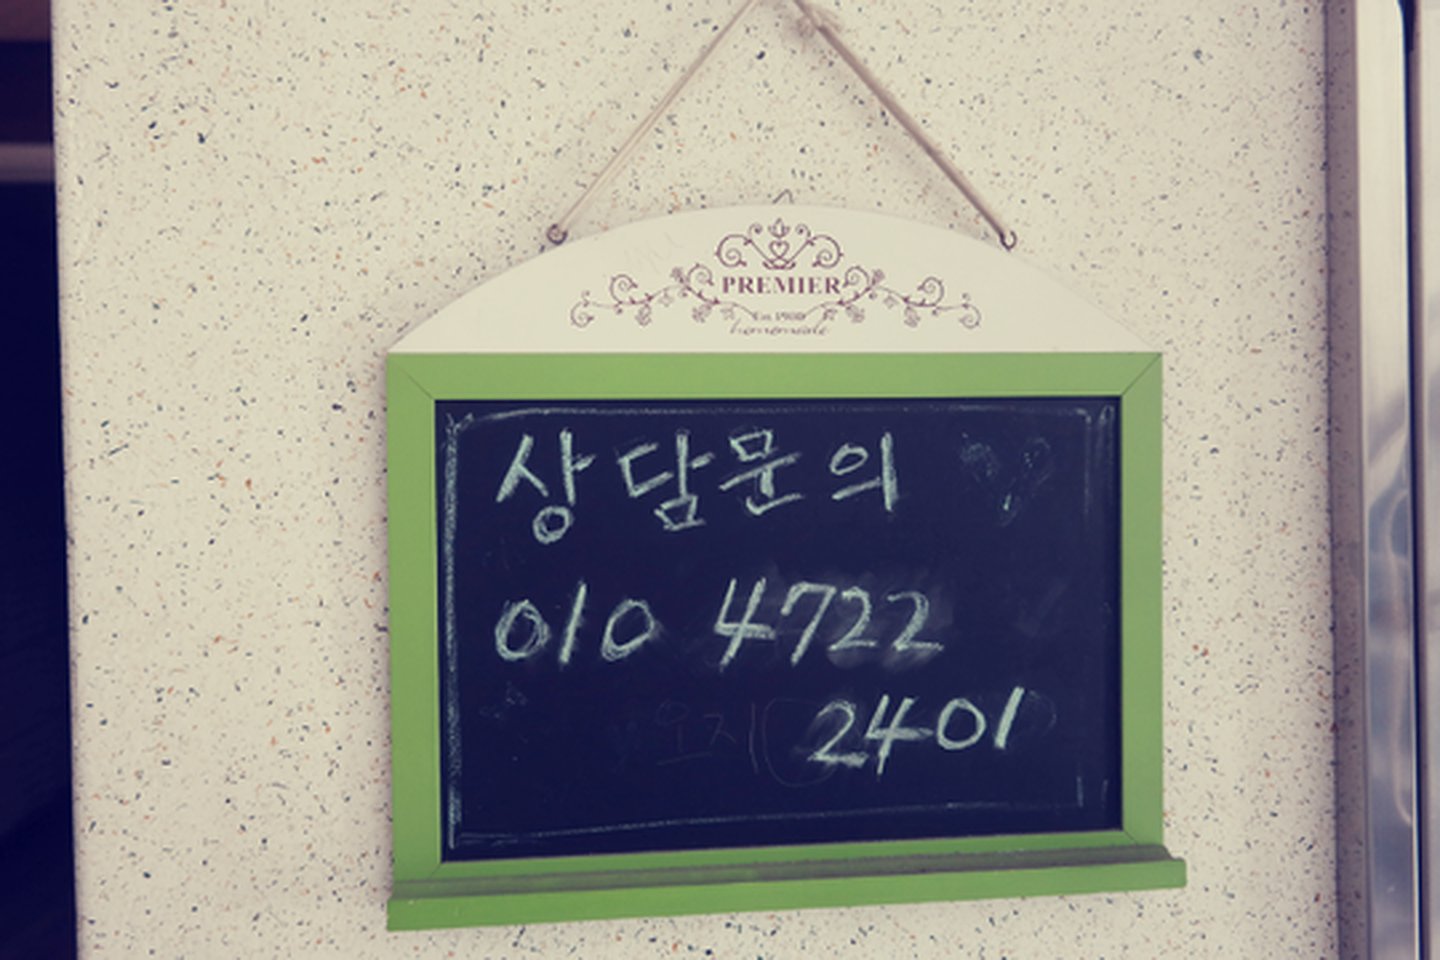 PREMIER
homemade
상담문의
010 4722
2401